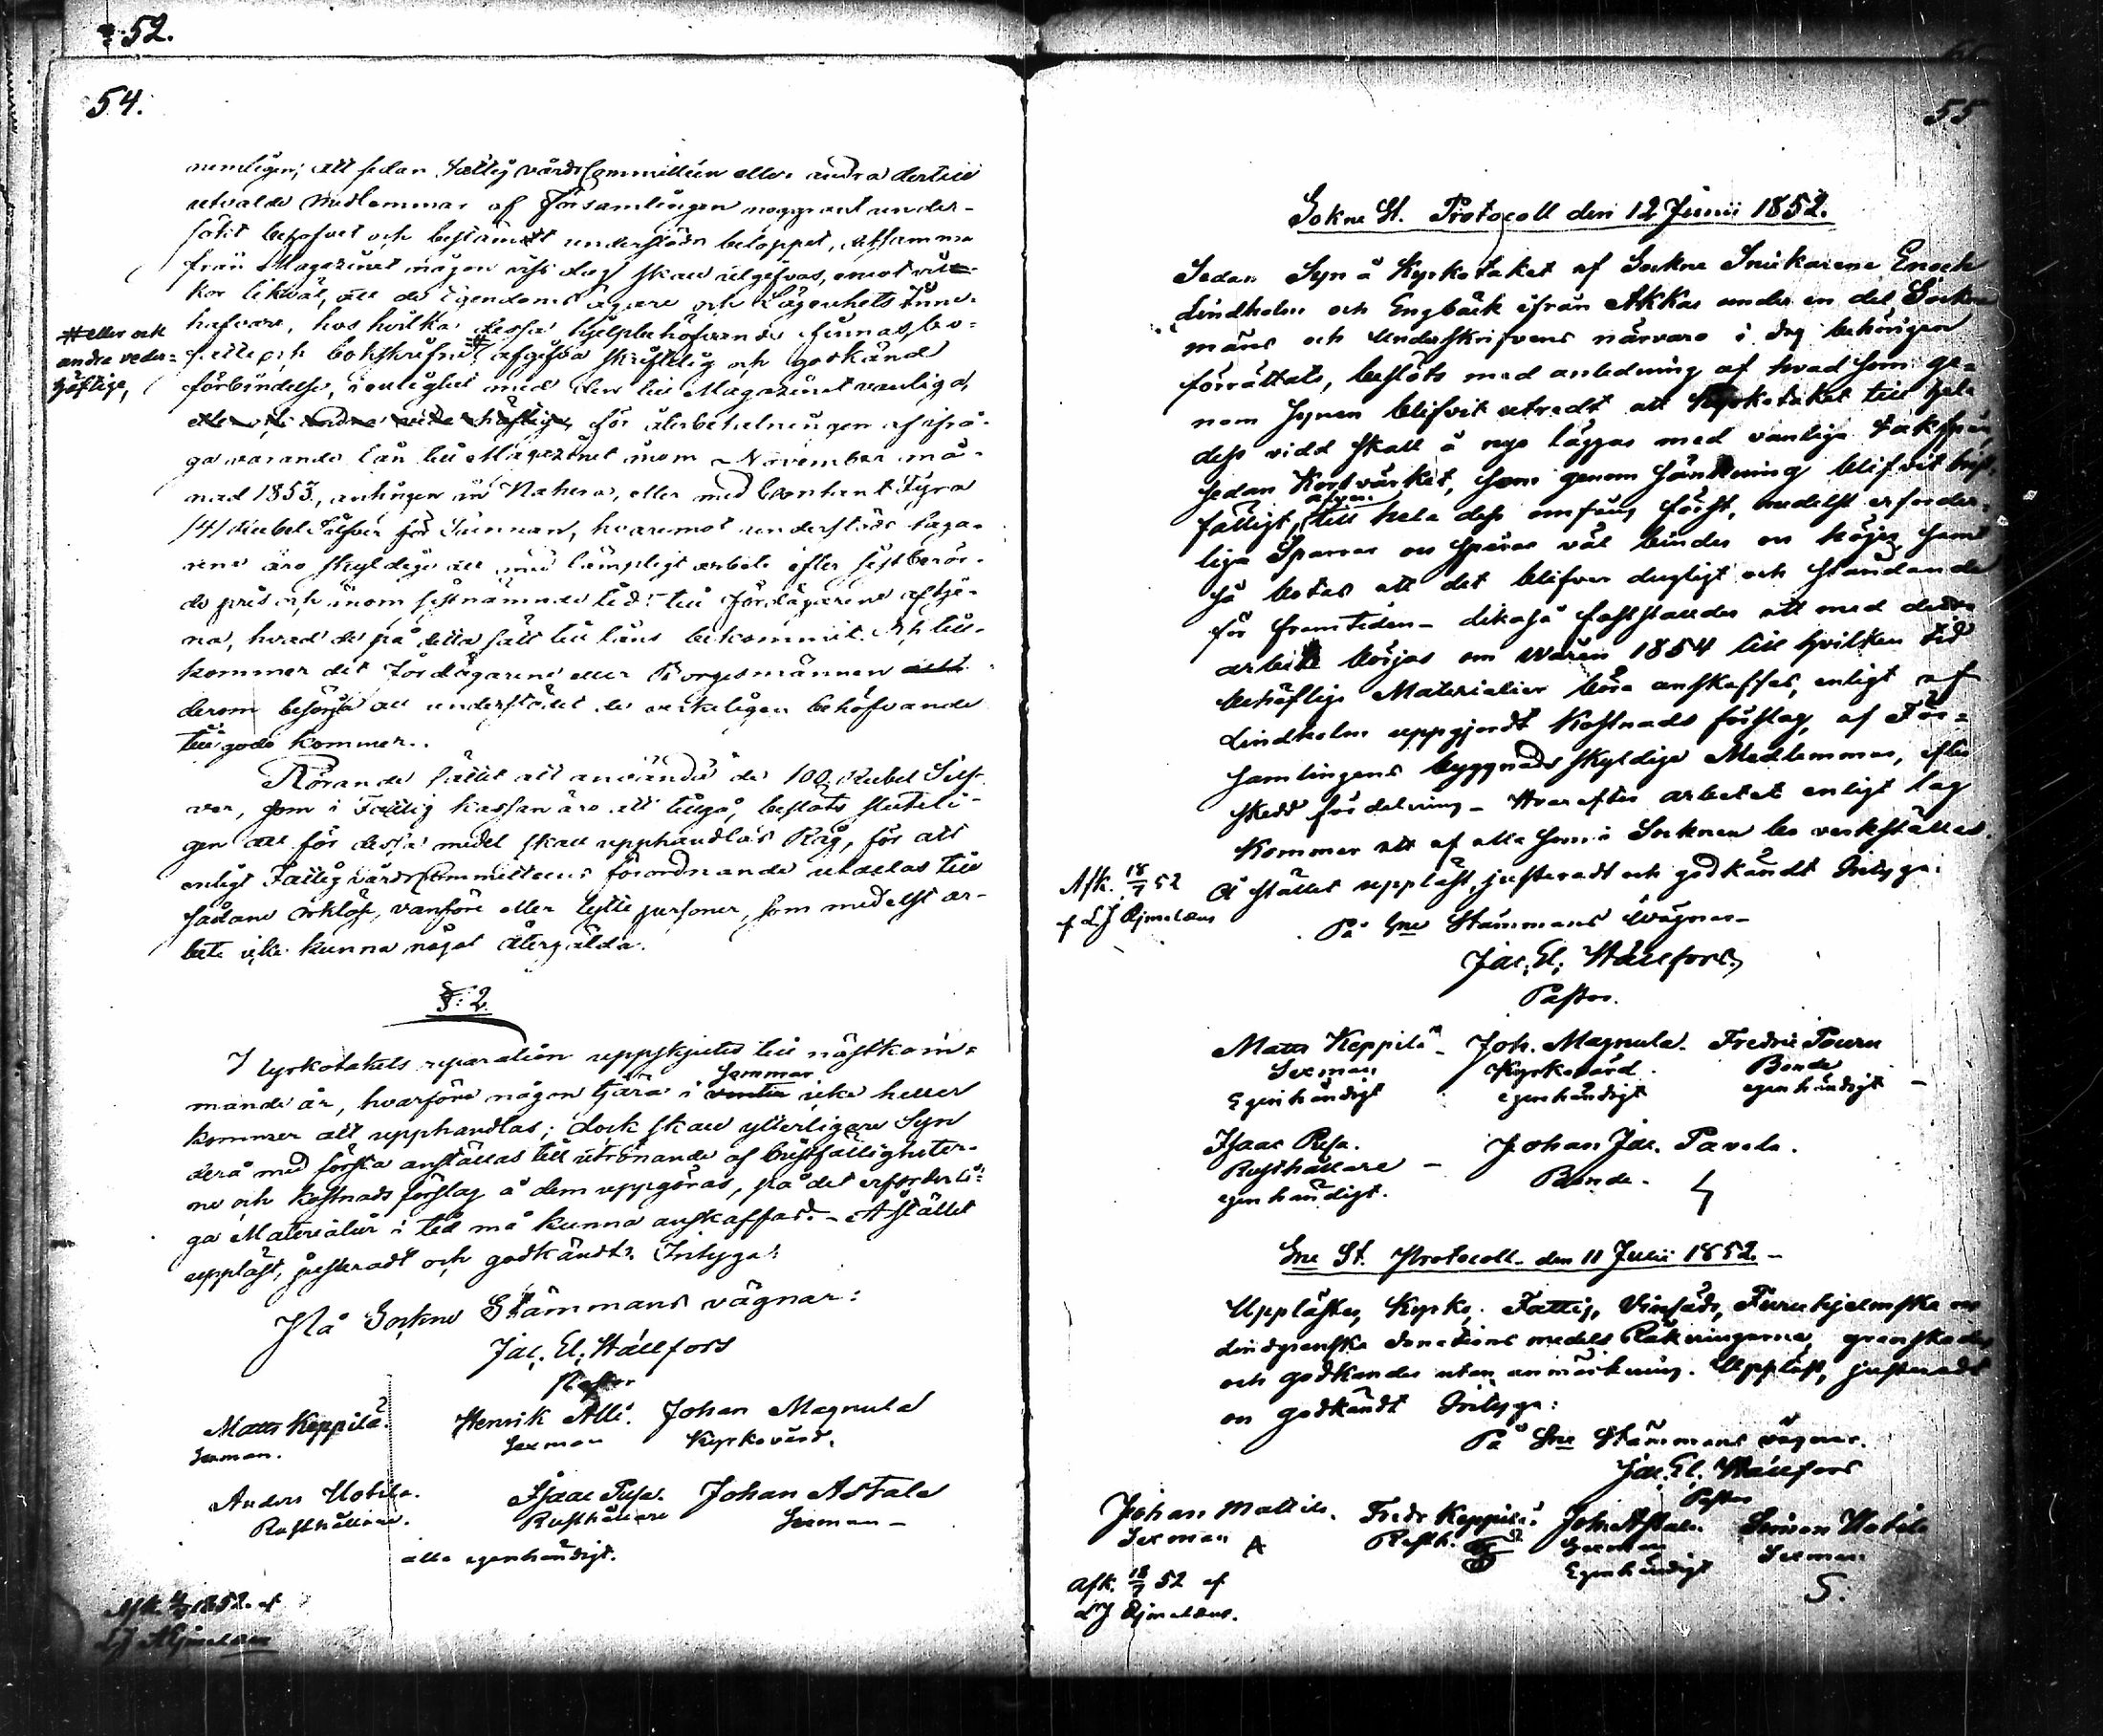 52.
54.
nemligen; att sedan Fattigvårds Committéen eller andra dertill
utvalde Medlemmar af Församlingen noggrant under-
sökt behofvet och bestämdt understöds beloppet, detsamma
från Magazinet någon viss dag skall utgifvas, emot vill-
kor likväl, att de Egendoms ägare och Lägenhets Inne-
hafvare, hos hvilka dessa hjelpbehöfvande finnas, be-
sutte och bokskrifne # afgifva skriftelig och godkänd
# eller ock
andra veder-
häftige,
förbindelse, i enlighet med den till Magazinet vanliga,
eller ock andra vederhäftige, för återbetalningen af ifrå-
ga varande Lån till Magazinet inom November må-
nad 1853, antingen in Natura, eller med Contant Fyra
/4/ Rubel Silfver för Tunnan, hvaremot understöds taga-
rena äro skyldige att med lämpligt arbete efter sistberör-
de pris och inom sistnämnde tid till Jordägarene aftje-
na, hvad de på detta sätt till låns bekommit. Och till-
kommer det Jordägarene eller Borgesmännen att
derom besörja att understödet de verkeligen behöfvande
till godo kommer.
Rörande sättet att använda de 100 Rubel Silf-
ver, som i Fattig kassan äro att tillgå, beslöts sluteli-
gen att för dessa medel skall upphandlas Råg, för att
enligt Fattigvårds Committeens förordnande utdelas till
sådane orklöse, vanföre eller lytte personer, som medelst ar-
bete icke kunna något återgälda.
§. 2.
Kyrkotakets reparation uppskjutes till nästkom-
mande år, hvarföre någon tjära i vinter sommar icke heller
kommer att upphandlas; dock skall ytterligare Syn
derå med första anställas till utrönande af bristfälligheter-
ne och kostnads förslag å dem uppgöras, på det erforderli-
ga Materialier i tid må kunna anskaffas. - A stället
uppläst, justeradt och godkändt. Intyga:
På Sockne Stämmans vägnar:
Jac. El. Hällfors
Pastor
Matts Keppilä. Henrik Alli. Johan Magnula
Sexman. Sexman Kyrkovärd.
Anders Uotila. Isaac Pusa. Johan Astala
Rusthållare. Rusthållare Sexman -
alla egenhändigt.
1852. af
55
Sokne St. Protocoll den 12 Junii 1852.
Sedan Syn å Kyrkotaket af Sockne Snickarena Enoch
Lindholm och Engbäck ifrån Akkas under en del Socken
mäns och Underskrifvens närvaro i dag behörigen
förrättats, beslöts med anledning af hvad som ge-
nom synen blifvit utredt att Kyrkotaket till hela
dess vidd skall å nyo läggas med vanliga takspån,
sedan Korsvärket, som genom sänkning blifvit brist-
fälligt, afven till hela dess omfång först, medelst erforder-
liga Sparrar och Spiror väl bindes och höjes, samt
så botas att det blifver dugligt och ståndande
för framtiden - likaså fastställdes att med detta
arbete börjas om Våren 1854 till hvilken tid
behöflige Materialier böra anskaffas, enligt af
Lindholm uppgjordt Kostnads förslag, af För-
samlingens byggnads skyldige Medlemmar, efter
skedd fördelning - Hvarefter arbetet enligt lag
kommer att af alla som i Socknen bo verkställas.
Afk. 18/7 52
Å stället uppläst, justeradt och godkändt Intyga:
På Sne Stämmans Wägnar -
Jac. El. Hällfors
Pastor.
Matts Keppilä - Joh. Magnula. Fredric Touru
Sexman Kyrkovärd. Bonde
Egenhändigt egenhändigt egenhändigt -
Isaac Pusa. Johan Jac. Pavela.
Rusthållare - Bonde.
egenhändigt.
Sne St. Protocoll den 11 Julii 1852. -
Upplästes, Kyrko, Fattig, Vinsäds, Furuhjelmska och
Lindgrenska donations medels Räkningarna, granskades
och godkändes utan anmärkning. Uppläst, justeradt
och godkändt Intyga:
På Sne Stämmans vägnar.
Jac. El. Hällfors
Pastor
Johan Mattila. Fredr. Keppilä. Joh. Astala. Simon Uotila
Sexman Rusth. Sexman Sexman
Egenhändigt
Afk. 18/7 52 af